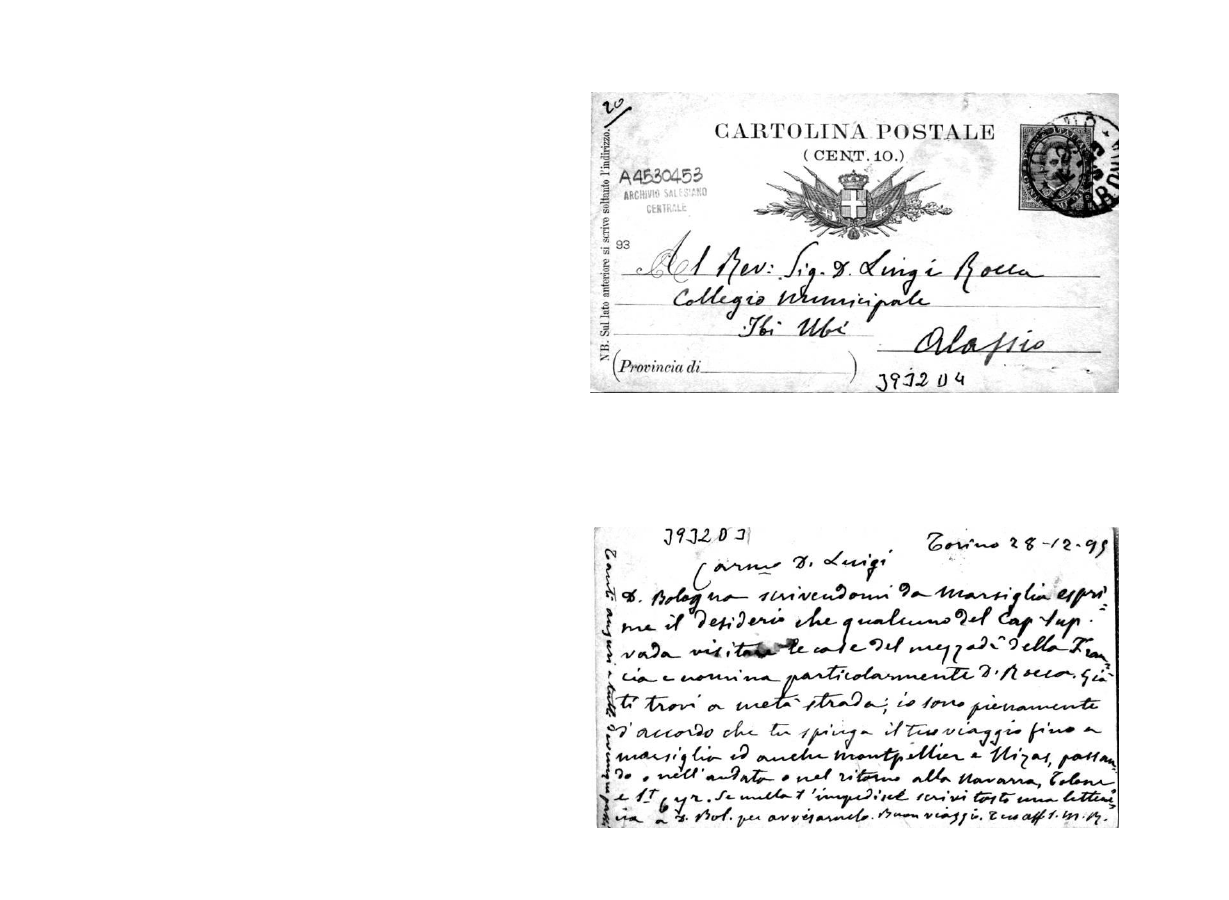 20
CARTOLINA POSTALE
(CENT. 10.)
A4530453
ARCHIVIO SALESIANO
CENTRALE
NB. Sul lato anteriore si scrive soltanto l'indirizzo.
93
Al Rev: Sig. D. Luigi Rocca
Collegio Municipale
Ibi Ubi
Alassio
(Provincia di)
3932 D 4
3932 D 3
Torino 28-12-95
Carmo D. Luigi
D. Bologna scrivendomi da Marsiglia espri-
me il desiderio che qualcuno del Cap. Sup.
vada visitare le case del mezzodì della Fran-
cia e nomina particolarmente D. Rocca. Già
ti trovi a metà strada; io sono pienamente
d'accordo che tu spinga il tuo viaggio fino a
Marsiglia ed anche Montpellier e Nizas, passan-
do o nell'andata o nel ritorno alla Navarra, Tolone
e St Cyr. Se nulla t'impedisce scrivi tosto una letteri-
na a D. Bol. per avvisarnelo. Buon viaggio. Tuo aff. S. M. R.
Tanti auguri a tutti